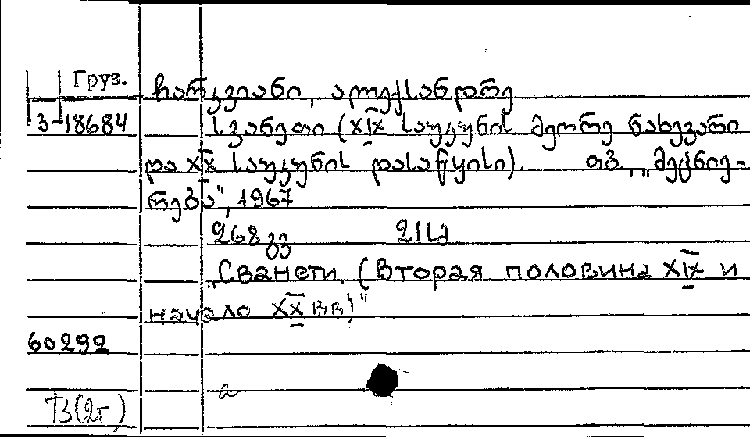 Груз. ჩარკვიანი, ალექსანდრე
3-18684 სვანეთი (XIX საუკუნის მეორე ნახევარი
და XX საუკუნის დასაწყისი). თბ., „მეცნიე-
რება", 1967
268 გვ 21 სმ
„Сванети (вторая половина XIX и
начало XX вв)"
60292